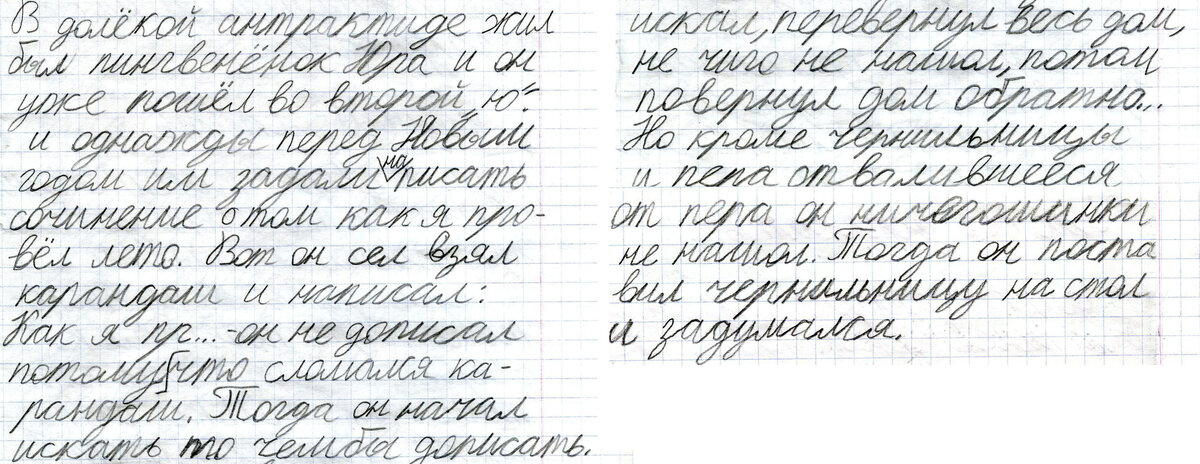 В долёкой антрактиде жил
был пингвенёнок Юра и он
уже пошёл во второй „ю".
и однажды перед Новым
годом им задали написать
сочинение о том как я про-
вёл лето. Вот он сел взял
карандаш и написал:
Как я пр... -он не дописал
потому что сломался ка-
рандаш. Тогда он начал
искать то чем бы дописать.
искал, перевернул весь дом,
не чиго не нашол, потом
повернул дом обратно...
Но кроме чернильницы
и пепа отвалившееся
от пера он ничегошинки
не нашол. Тогда он поста
вил чернильницу на стол
и задумался.